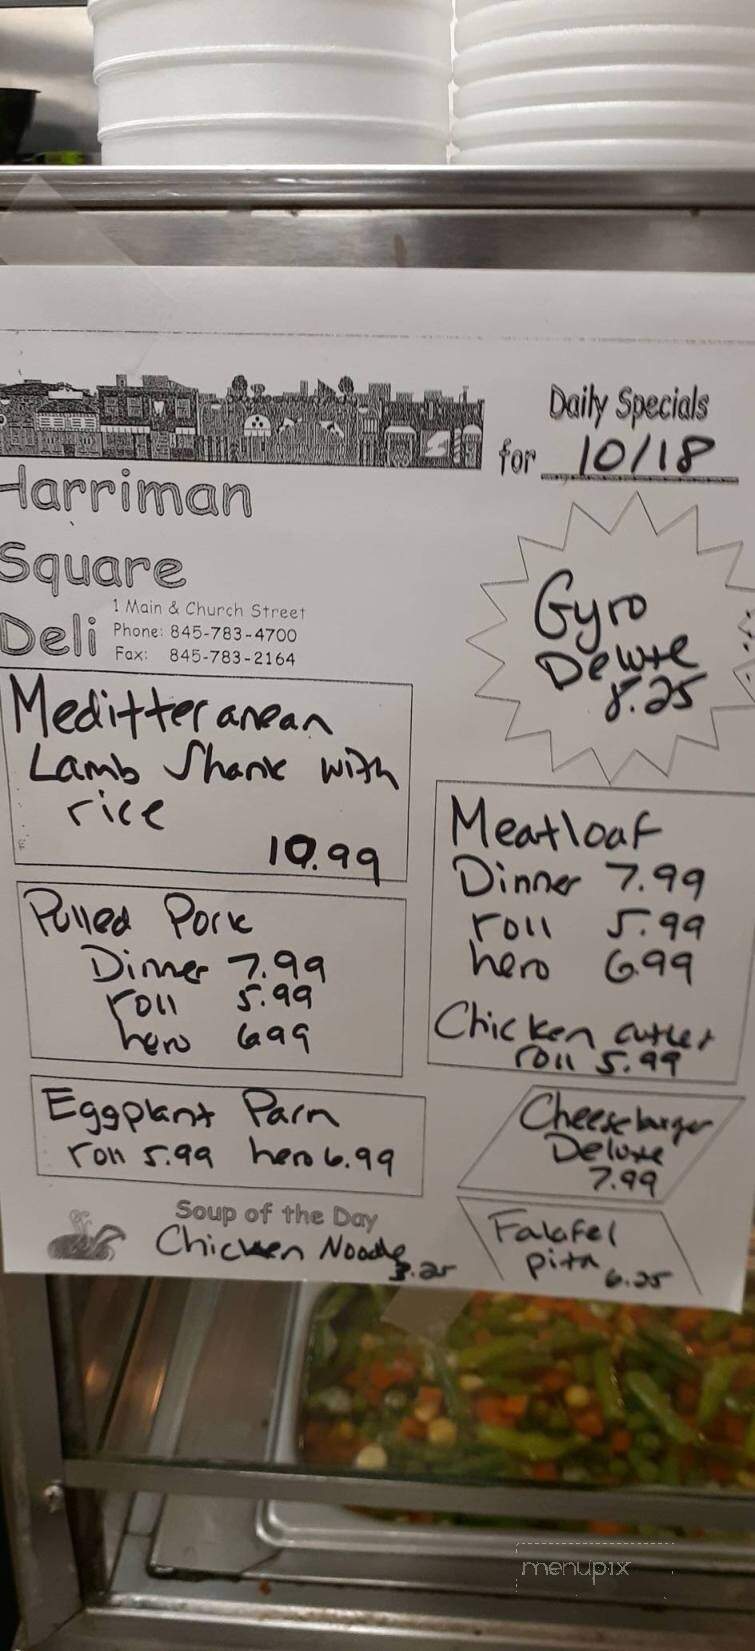 Daily Specials
for 10/18
Harriman
Square
Deli
1 Main & Church Street
Phone: 845-783-4700
Fax: 845-783-2164
Gyro
Deluxe
8.25
Meditteranean
Lamb Shank with
rice
10.99
Meatloaf
Dinner 7.99
roll 5.99
hero 6.99
Chicken cutlet
roll 5.99
Pulled Pork
Dinner 7.99
roll 5.99
hero 6.99
Eggplant Parm
roll 5.99 hero 6.99
Cheeseburger
Deluxe
7.99
Soup of the Day
Chicken Noodle 3.25
Falafel
pita 6.25
menupix